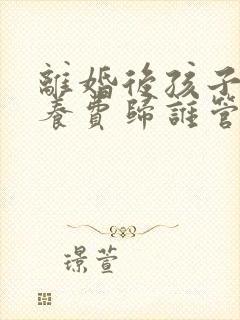 離婚後孩子
養費歸誰管
璟萱